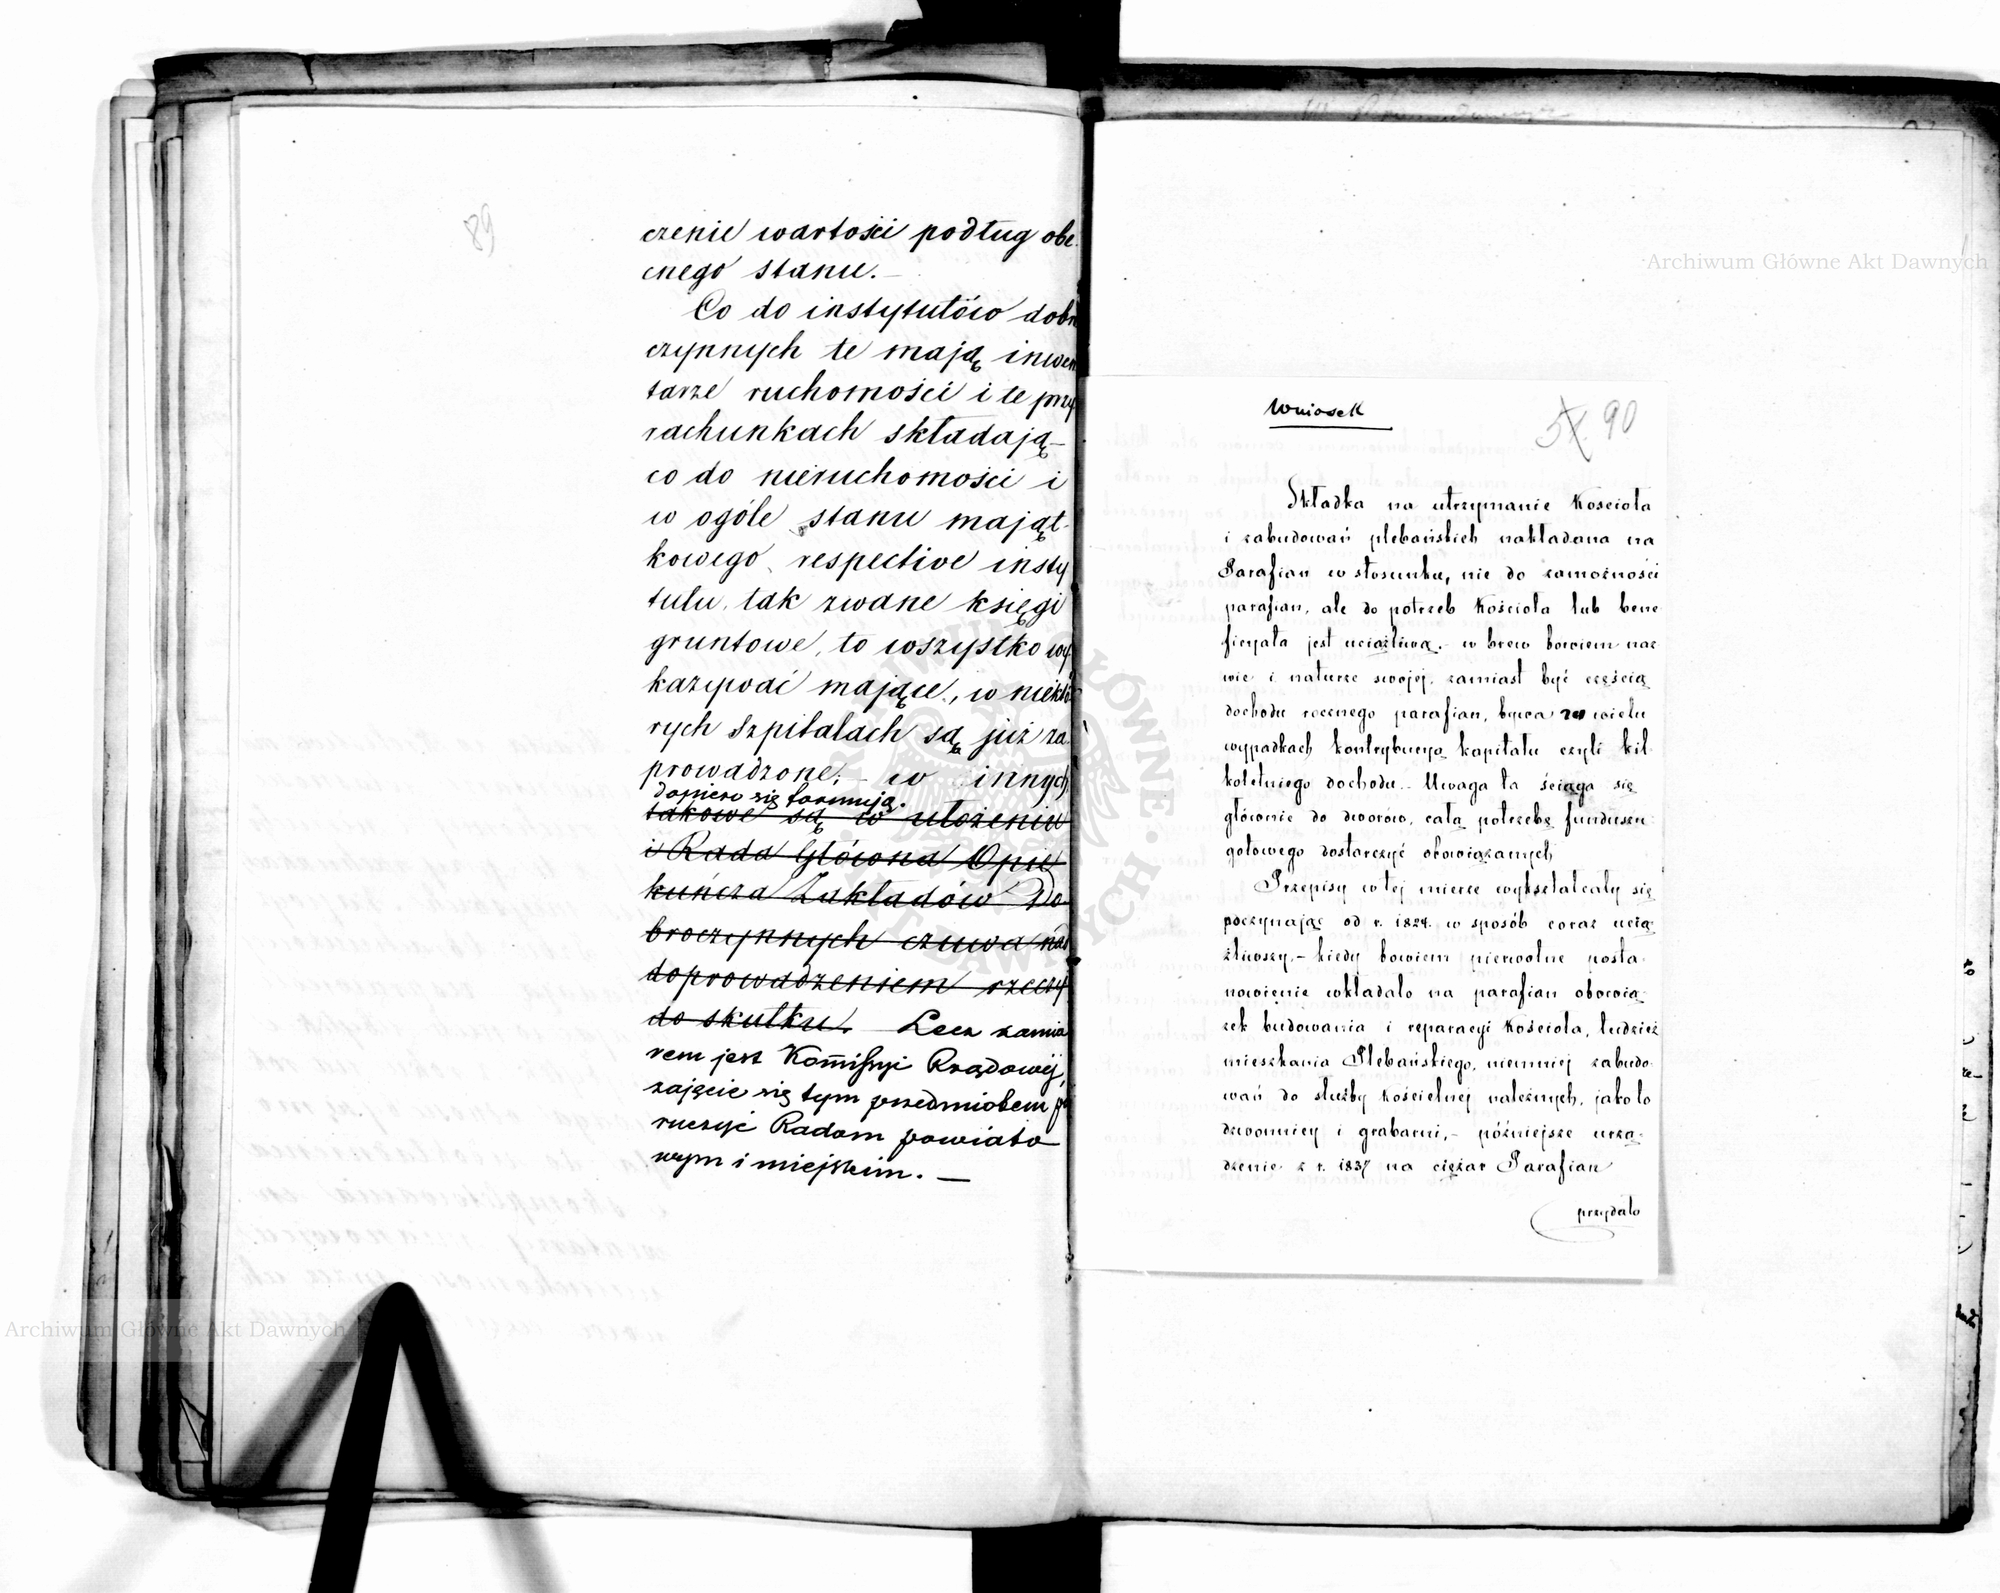 89
czenie wartości podług obe-
cnego stanu. —
Co do instytutów dobr
czynnych te mają inwen
tarze ruchomości i te przy
rachunkach składają —
co do nieruchomości i
w ogóle stanu mająt-
kowego respective insty
tutu, tak zwane księgi
gruntowe, to wszystko wy
kazywać mające, w niektó
rych Szpitalach są już za-
prowadzone; — w innych
dopiero się formują.
takowe są w ułożeniu
i Rada Główna Opie
kuńcza Zakładów Do-
broczynnych czuwa nad
doprowadzeniem rzeczy
do skutku. Lecz zamia
rem jest Kommissyi Rządowej,
zajęcie się tym przedmiotem po
ruczyć Radom powiato
wym i miejskim. —
Wniosek
90
Składka na utrzymanie Kościoła
i zabudowań plebańskich nakładana na
Parafian w stosunku, nie do zamożności
parafian, ale do potrzeb Kościoła lub bene
ficyata jest uciążliwą. — w brew bowiem naz
wie i naturze swojej, zamiast być częścią
dochodu rocznego parafian, bywa w wielu
wypadkach kontrybucyą kapitału czyli kil-
koletniego dochodu. — Uwaga ta ściąga się
głównie do dworów, całą potrzebę funduszu
gotowego dostarczyć obowiązanych.
Przepisy w tej mierze wykształcały się
poczynając od r. 1824. w sposób coraz ucią
żliwszy. — kiedy bowiem pierwotne posta-
nowienie wkładało na parafian obowią-
zek budowania i reparacyi Kościoła, tudzież
mieszkania Plebańskiego, niemniej zabudo-
wań do służby kościelnej należnych, jako to
dzwonnicy i grabarni, — późniejsze urzą-
dzenie z r. 1837 na ciężar Parafian
przydało
Archiwum Główne Akt Dawnych
Archiwum Główne Akt Dawnych
ARCHIWUM GŁÓWNE AKT DAWNYCH